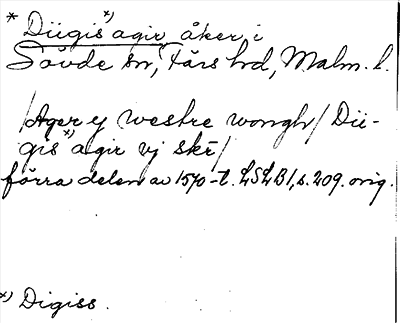 * Diigis *) agir åker i
Sövde sn, Färs hd, Malm. l.
/Ager ej westre wongh/ Dii-
gis *) agir vj skr/
förra delen av 1570-t. LSLB1, s. 209. orig.
*) Digiss.